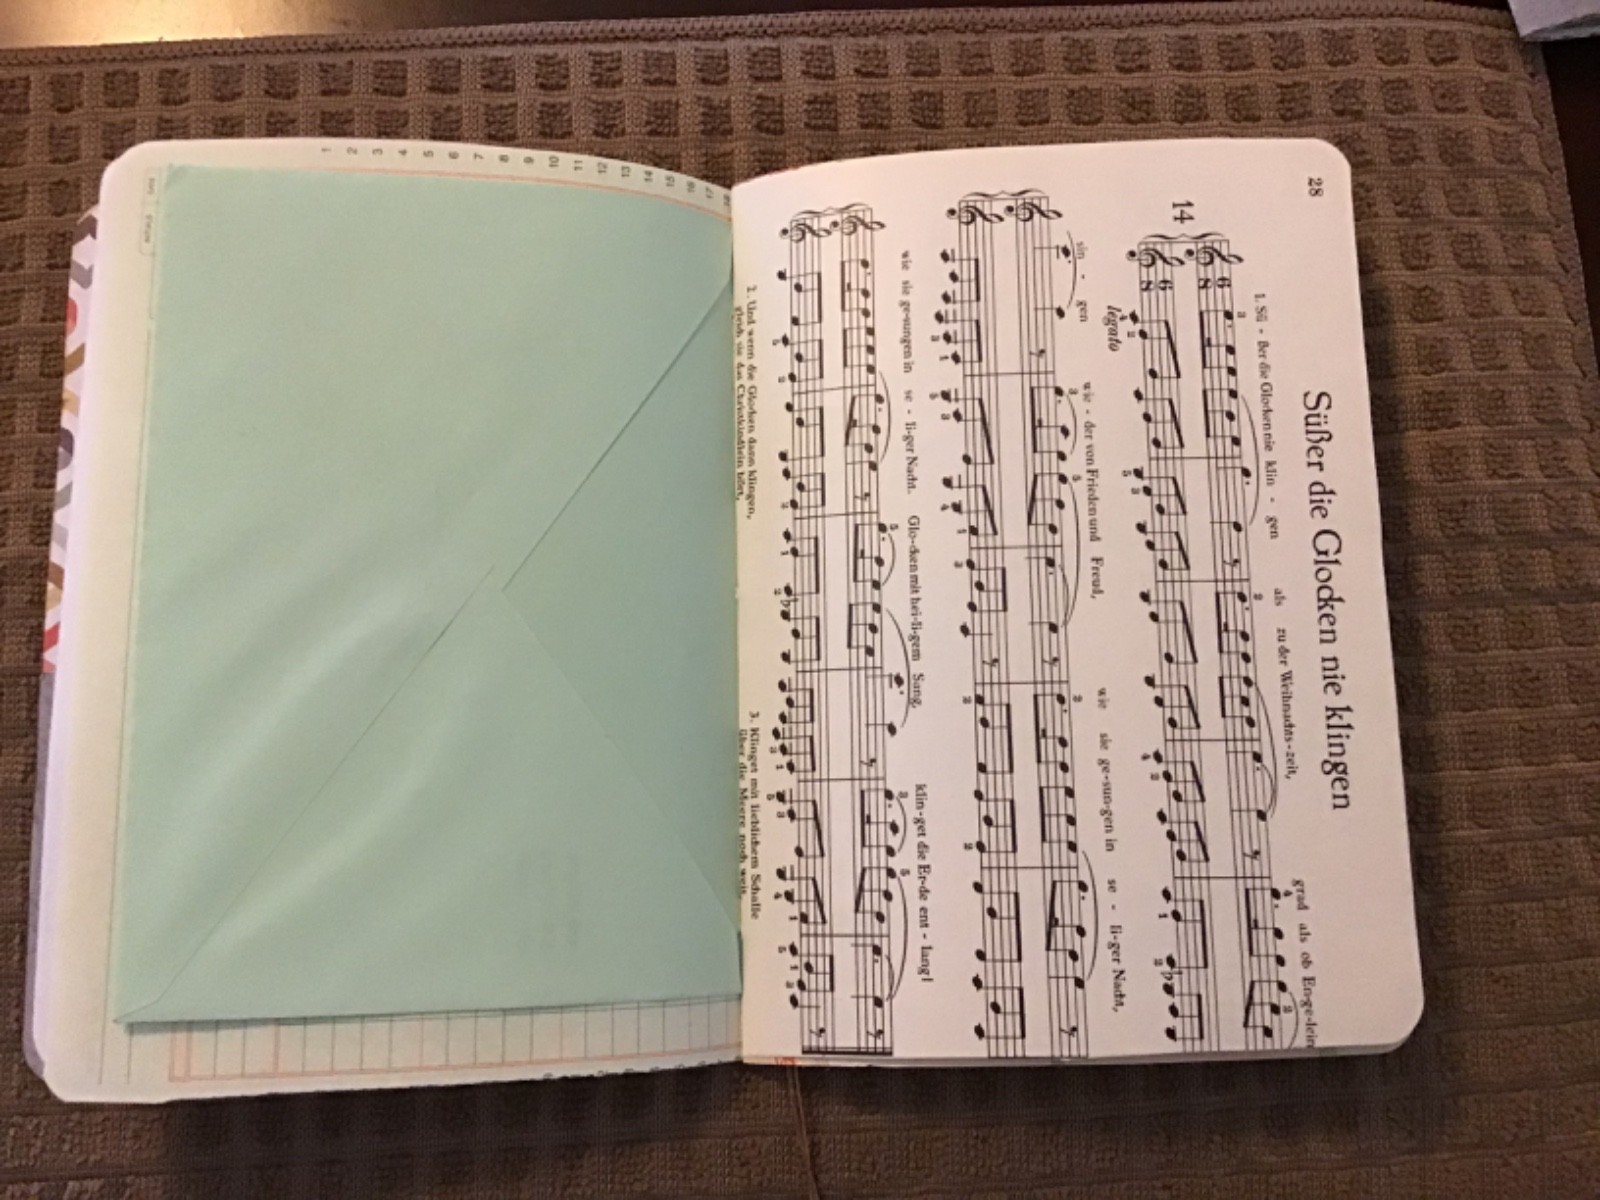 28
Süßer die Glocken nie klingen
14
1. Sü - ßer die Glocken nie klin - gen als zu der Weihnachts-zeit, grad als ob En-ge-lein
legato
sin - gen wie - der von Frieden und Freud, wie sie ge-sun-gen in se - li-ger Nacht,
wie sie ge-sungen in se - li-ger Nacht. Glo-cken mit hei-li-gem Sang, klin-get die Er-de ent - lang!
2. Und wenn die Glocken dann klingen,
gleich sie das Christkindlein hört,
3. Klinget mit lieblichem Schalle
über die Meere noch weit,
1 2 3 4 5 6 7 8 9 10 11 12 13 14 15 16 17